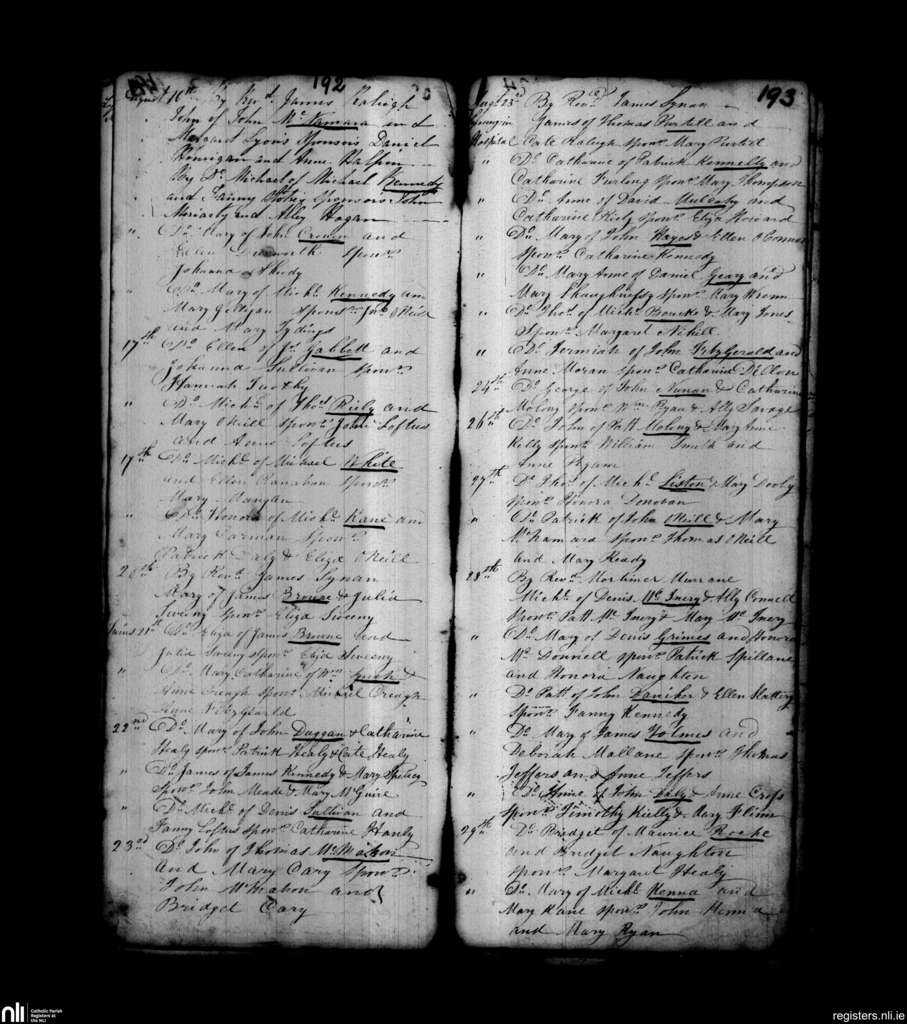 192
August 16th By Revd. James Raleigh
John of John McNamara and
Margaret Lyons Sponsors Daniel
and Anne Halpin
By Do. Michael of Michael Kennedy
and Fanny Sponsors John
Moriarty and Alley Hogan
" Do. Mary of John Cronin and
Ellen sponrs.
Johanna Ahudy
" Do. Mary of Michl. Kennedy and
Mary Galligan sponsrs. Jno. ONeill
and Mary
17th Do. Ellen of Js. Gabbett and
Johanna Sullivan sponrs.
Hannah Twohy
" Do. Michl. of Thos. Riely and
Mary ONeill sponr. John Loftus
and Anne Loftus
17th Do. Michl. of Michael White
and Ellen Hanahan sponr.
Mary Mangan
" Do. Honora of Michl. Kane and
Mary Gorman sponrs.
Patrick Daly & Eliza ONeill
20th By Revd. James Synan
Mary of James Browne & Julia
Sweeny sponr. Eliza Sweeny
21st Do. Eliza of James Browne and
Julia Sweeny sponr. Eliza Sweeny
" Do. Mary Catharine of Wm. Lynch &
Anne Creagh sponr. Michael Creagh
Anne FitzGerald
22nd Do. Mary of John Duggan & Catharine
Healy sponr. Patrick Healy & Cate Healy
" Do. James of James Kennedy & Mary
sponr. John Meade & Mary McGuire
" Do. Michl. of Denis Sullivan and
Fanny Loftus sponr. Catharine Hanly
23rd Do. John of Thomas McMahon
and Mary Cary sponrs.
John McMahon and
Bridget Cary
193
Augt 23rd By Revd. James Synan
in James of Thomas Purtell and
Hospital Cate Raleigh sponr. Mary Purtell
" Do. Catharine of Patrick Kennelly and
Catharine Furlong sponr. Mary Thompson
" Do. Anne of David Mulcahy and
Catharine Kiely sponr. Eliza Howard
" Do. Mary of John Hayes & Ellen OConnor
sponr. Catharine Kennedy
" Do. Mary Anne of Daniel Geary and
Mary Shaughnessy sponr. Mary Wrenn
" Do. Thos. of Michl. Bourke & Mary Jones
Sponr. Margaret Nihill
" Do. Jermiah of John FitzGerald and
Anne Moran sponr. Catharine Dillon
24th Do. George of John Nunan & Catharine
Molony sponr. Wm. Ryan & Ally Savage
26th Do. John of Patt Molony & Mary Anne
Kelly sponr. William Smith and
Anne Ryan
27th Do. Thos. of Michl. Liston & Mary Dooly
sponr. Honora Donovan
" Do. Patrick of John ONeill & Mary
McNamara sponr. Thomas ONeill
and Mary Keady
28th By Revd. Mortimer Murrane
Michl. of Denis McInery & Ally Connell
sponr. Patt McInery & Mary McInery
" Do. Mary of Denis Grimes and Honora
McDonnell sponr. Patrick Spillane
and Honora Naughton
" Do. Patt of John Daniher & Ellen Slattery
sponr. Fanny Kennedy
" Do. Mary of James Holmes and
Deborah Mallane sponr. Thomas
Jeffers and Anne Jeffers
" Do. Anne of John Daly & Anne Cross
sponr. Timothy Kielly & Mary Flinn
29th Do. Bridget of Maurice Roche
and Bridget Naughton
sponr. Margaret Healy
" Do. Mary of Michl. Kenna and
Mary Kane sponr. John Kenna
and Mary Ryan
nli
Catholic Parish
Registers at
the NLI
registers.nli.ie